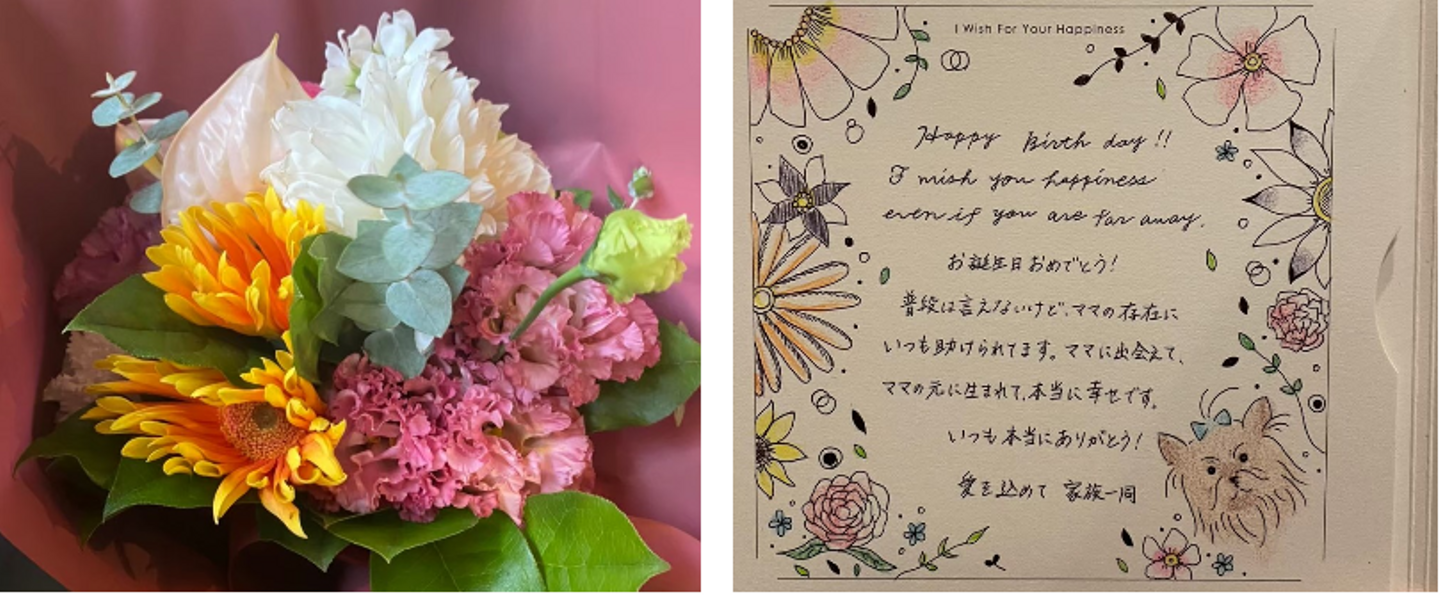 I Wish For Your Happiness
Happy Birth day !!
I wish you happiness
even if you are far away.
お誕生日おめでとう!
普段は言えないけど、ママの存在に
いつも助けられてます。ママに出会えて、
ママの元に生まれて、本当に幸せです。
いつも本当にありがとう!
愛を込めて 家族一同